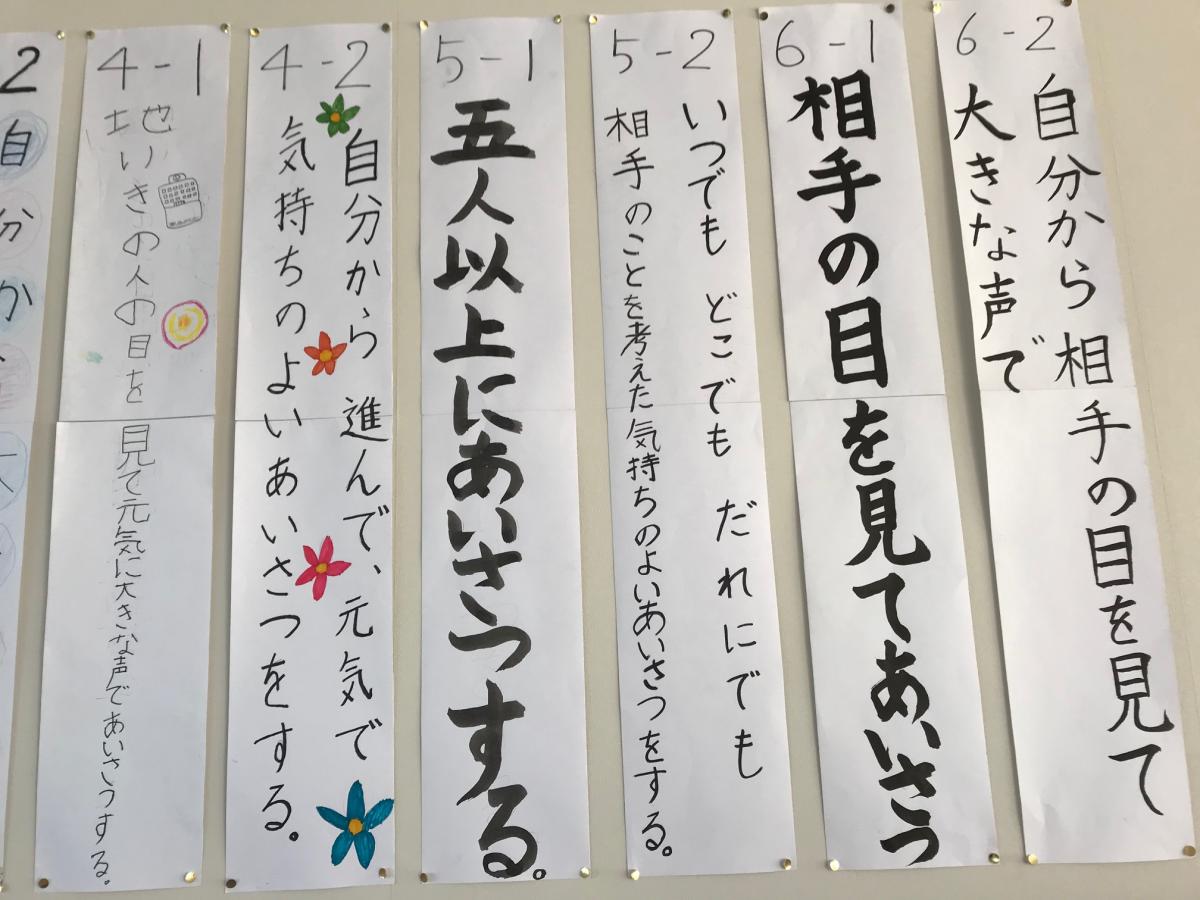 2
自分か
4-1
地いきの人の目を見て元気に大きな声であいさつする。
4-2
自分から進んで、元気で
気持ちのよいあいさつをする。
5-1
五人以上にあいさつする。
5-2
いつでも どこでも だれにでも
相手のことを考えた気持ちのよいあいさつをする。
6-1
相手の目を見てあいさつ
6-2
自分から相手の目を見て
大きな声で